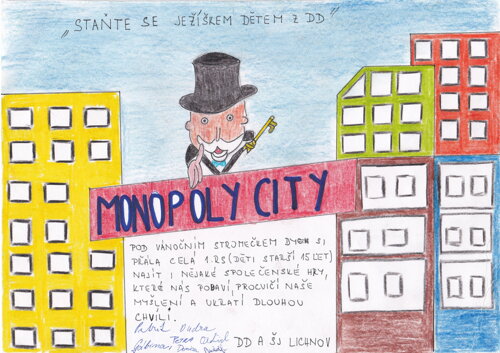 „STAŇTE SE JEŽÍŠKEM DĚTEM Z DD"
MONOPOLY CITY
POD VÁNOČNÍM STROMEČKEM BYCH SI
PŘÁLA CELÁ 1.RS (DĚTI STARŠÍ 15 LET)
NAJÍT I NĚJAKÉ SPOLEČENSKÉ HRY,
KTERÉ NÁS POBAVÍ, PROCVIČÍ NAŠE
MYŠLENÍ A UKRÁTÍ DLOUHOU
CHVÍLI.
DD A ŠJ LICHNOV